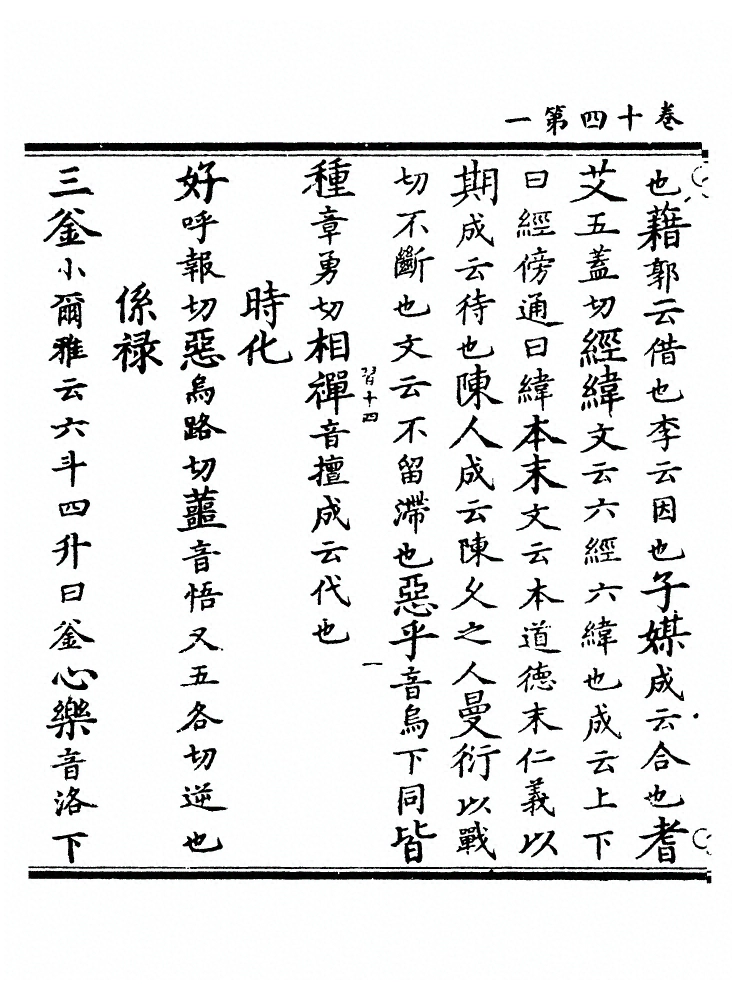 卷十四第一
也藉郭云借也李云因也子媒成云合也耆
艾五蓋切經緯文云六經六緯也成云上下
曰經傍通曰緯本末文云本道德末仁義以
期成云待也陳人成云陳久之人曼衍以戰
切不斷也文云不留滯也惡乎音烏下同皆
習十四
一
種章勇切相禪音擅成云代也
時化
好呼報切惡烏路切蘁音悟又五各切逆也
係祿
三釜小爾雅云六斗四升曰釜心樂音洛下